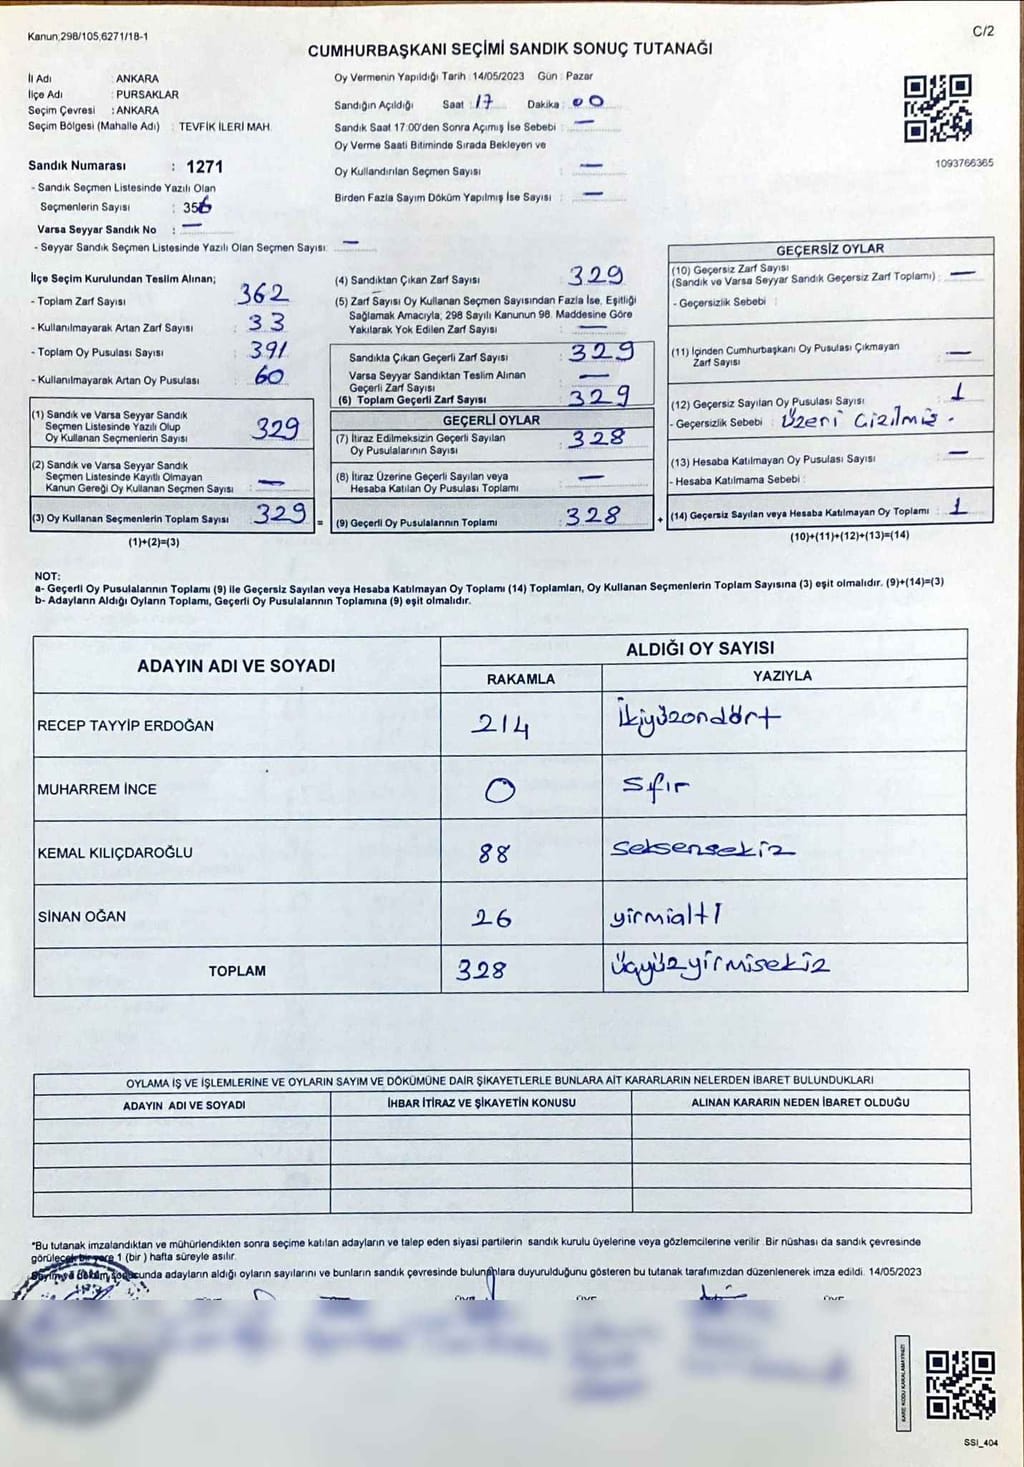 Kanun,298/105,6271/18-1
C/2
CUMHURBAŞKANI SEÇİMİ SANDIK SONUÇ TUTANAĞI
İl Adı : ANKARA
İlçe Adı : PURSAKLAR
Seçim Çevresi : ANKARA
Seçim Bölgesi (Mahalle Adı) : TEVFİK İLERİ MAH.
Sandık Numarası : 1271
- Sandık Seçmen Listesinde Yazılı Olan
Seçmenlerin Sayısı : 356
Varsa Seyyar Sandık No : —
- Seyyar Sandık Seçmen Listesinde Yazılı Olan Seçmen Sayısı: —
Oy Vermenin Yapıldığı Tarih : 14/05/2023 Gün : Pazar
Sandığın Açıldığı Saat : 17 Dakika : 00
Sandık Saat 17:00'den Sonra Açımış İse Sebebi : —
Oy Verme Saati Bitiminde Sırada Bekleyen ve
Oy Kullandırılan Seçmen Sayısı : —
Birden Fazla Sayım Döküm Yapılmış İse Sayısı : —
1093766365
İlçe Seçim Kurulundan Teslim Alınan;
- Toplam Zarf Sayısı : 362
- Kullanılmayarak Artan Zarf Sayısı : 33
- Toplam Oy Pusulası Sayısı : 391
- Kullanılmayarak Artan Oy Pusulası : 60
(1) Sandık ve Varsa Seyyar Sandık
Seçmen Listesinde Yazılı Olup
Oy Kullanan Seçmenlerin Sayısı : 329
(2) Sandık ve Varsa Seyyar Sandık
Seçmen Listesinde Kayıtlı Olmayan
Kanun Gereği Oy Kullanan Seçmen Sayısı : —
(3) Oy Kullanan Seçmenlerin Toplam Sayısı : 329 =
(1)+(2)=(3)
(4) Sandıktan Çıkan Zarf Sayısı : 329
(5) Zarf Sayısı Oy Kullanan Seçmen Sayısından Fazla İse, Eşitliği
Sağlamak Amacıyla; 298 Sayılı Kanunun 98. Maddesine Göre
Yakılarak Yok Edilen Zarf Sayısı : —
Sandıkta Çıkan Geçerli Zarf Sayısı : 329
Varsa Seyyar Sandıktan Teslim Alınan
Geçerli Zarf Sayısı : —
(6) Toplam Geçerli Zarf Sayısı : 329
GEÇERLİ OYLAR
(7) İtiraz Edilmeksizin Geçerli Sayılan
Oy Pusulalarının Sayısı : 328
(8) İtiraz Üzerine Geçerli Sayılan veya
Hesaba Katılan Oy Pusulası Toplamı : —
(9) Geçerli Oy Pusulalarının Toplamı : 328 +
GEÇERSİZ OYLAR
(10) Geçersiz Zarf Sayısı
(Sandık ve Varsa Seyyar Sandık Geçersiz Zarf Toplamı) : —
- Geçersizlik Sebebi :
(11) İçinden Cumhurbaşkanı Oy Pusulası Çıkmayan
Zarf Sayısı : —
(12) Geçersiz Sayılan Oy Pusulası Sayısı : 1
- Geçersizlik Sebebi : Üzeri Çizilmiş.
(13) Hesaba Katılmayan Oy Pusulası Sayısı : —
- Hesaba Katılmama Sebebi :
(14) Geçersiz Sayılan veya Hesaba Katılmayan Oy Toplamı : 1
(10)+(11)+(12)+(13)=(14)
NOT:
a- Geçerli Oy Pusulalarının Toplamı (9) ile Geçersiz Sayılan veya Hesaba Katılmayan Oy Toplamı (14) Toplamları, Oy Kullanan Seçmenlerin Toplam Sayısına (3) eşit olmalıdır. (9)+(14)=(3)
b- Adayların Aldığı Oyların Toplamı, Geçerli Oy Pusulalarının Toplamına (9) eşit olmalıdır.
ADAYIN ADI VE SOYADI
ALDIĞI OY SAYISI
RAKAMLA YAZIYLA
RECEP TAYYİP ERDOĞAN 214 İkiyüzondört
MUHARREM İNCE 0 Sıfır
KEMAL KILIÇDAROĞLU 88 seksensekiz
SİNAN OĞAN 26 yirmialtı
TOPLAM 328 üçyüzyirmisekiz
OYLAMA İŞ VE İŞLEMLERİNE VE OYLARIN SAYIM VE DÖKÜMÜNE DAİR ŞİKAYETLERLE BUNLARA AİT KARARLARIN NELERDEN İBARET BULUNDUKLARI
ADAYIN ADI VE SOYADI İHBAR İTİRAZ VE ŞİKAYETİN KONUSU ALINAN KARARIN NEDEN İBARET OLDUĞU
*Bu tutanak imzalandıktan ve mühürlendikten sonra seçime katılan adayların ve talep eden siyasi partilerin sandık kurulu üyelerine veya gözlemcilerine verilir. Bir nüshası da sandık çevresinde
görülecek bir yere 1 (bir) hafta süreyle asılır.
Sayım ve döküm sonucunda adayların aldığı oyların sayılarını ve bunların sandık çevresinde bulunanlara duyurulduğunu gösteren bu tutanak tarafımızdan düzenlenerek imza edildi. 14/05/2023
KARE KODU KARALAMAYINIZ!
SSI_404